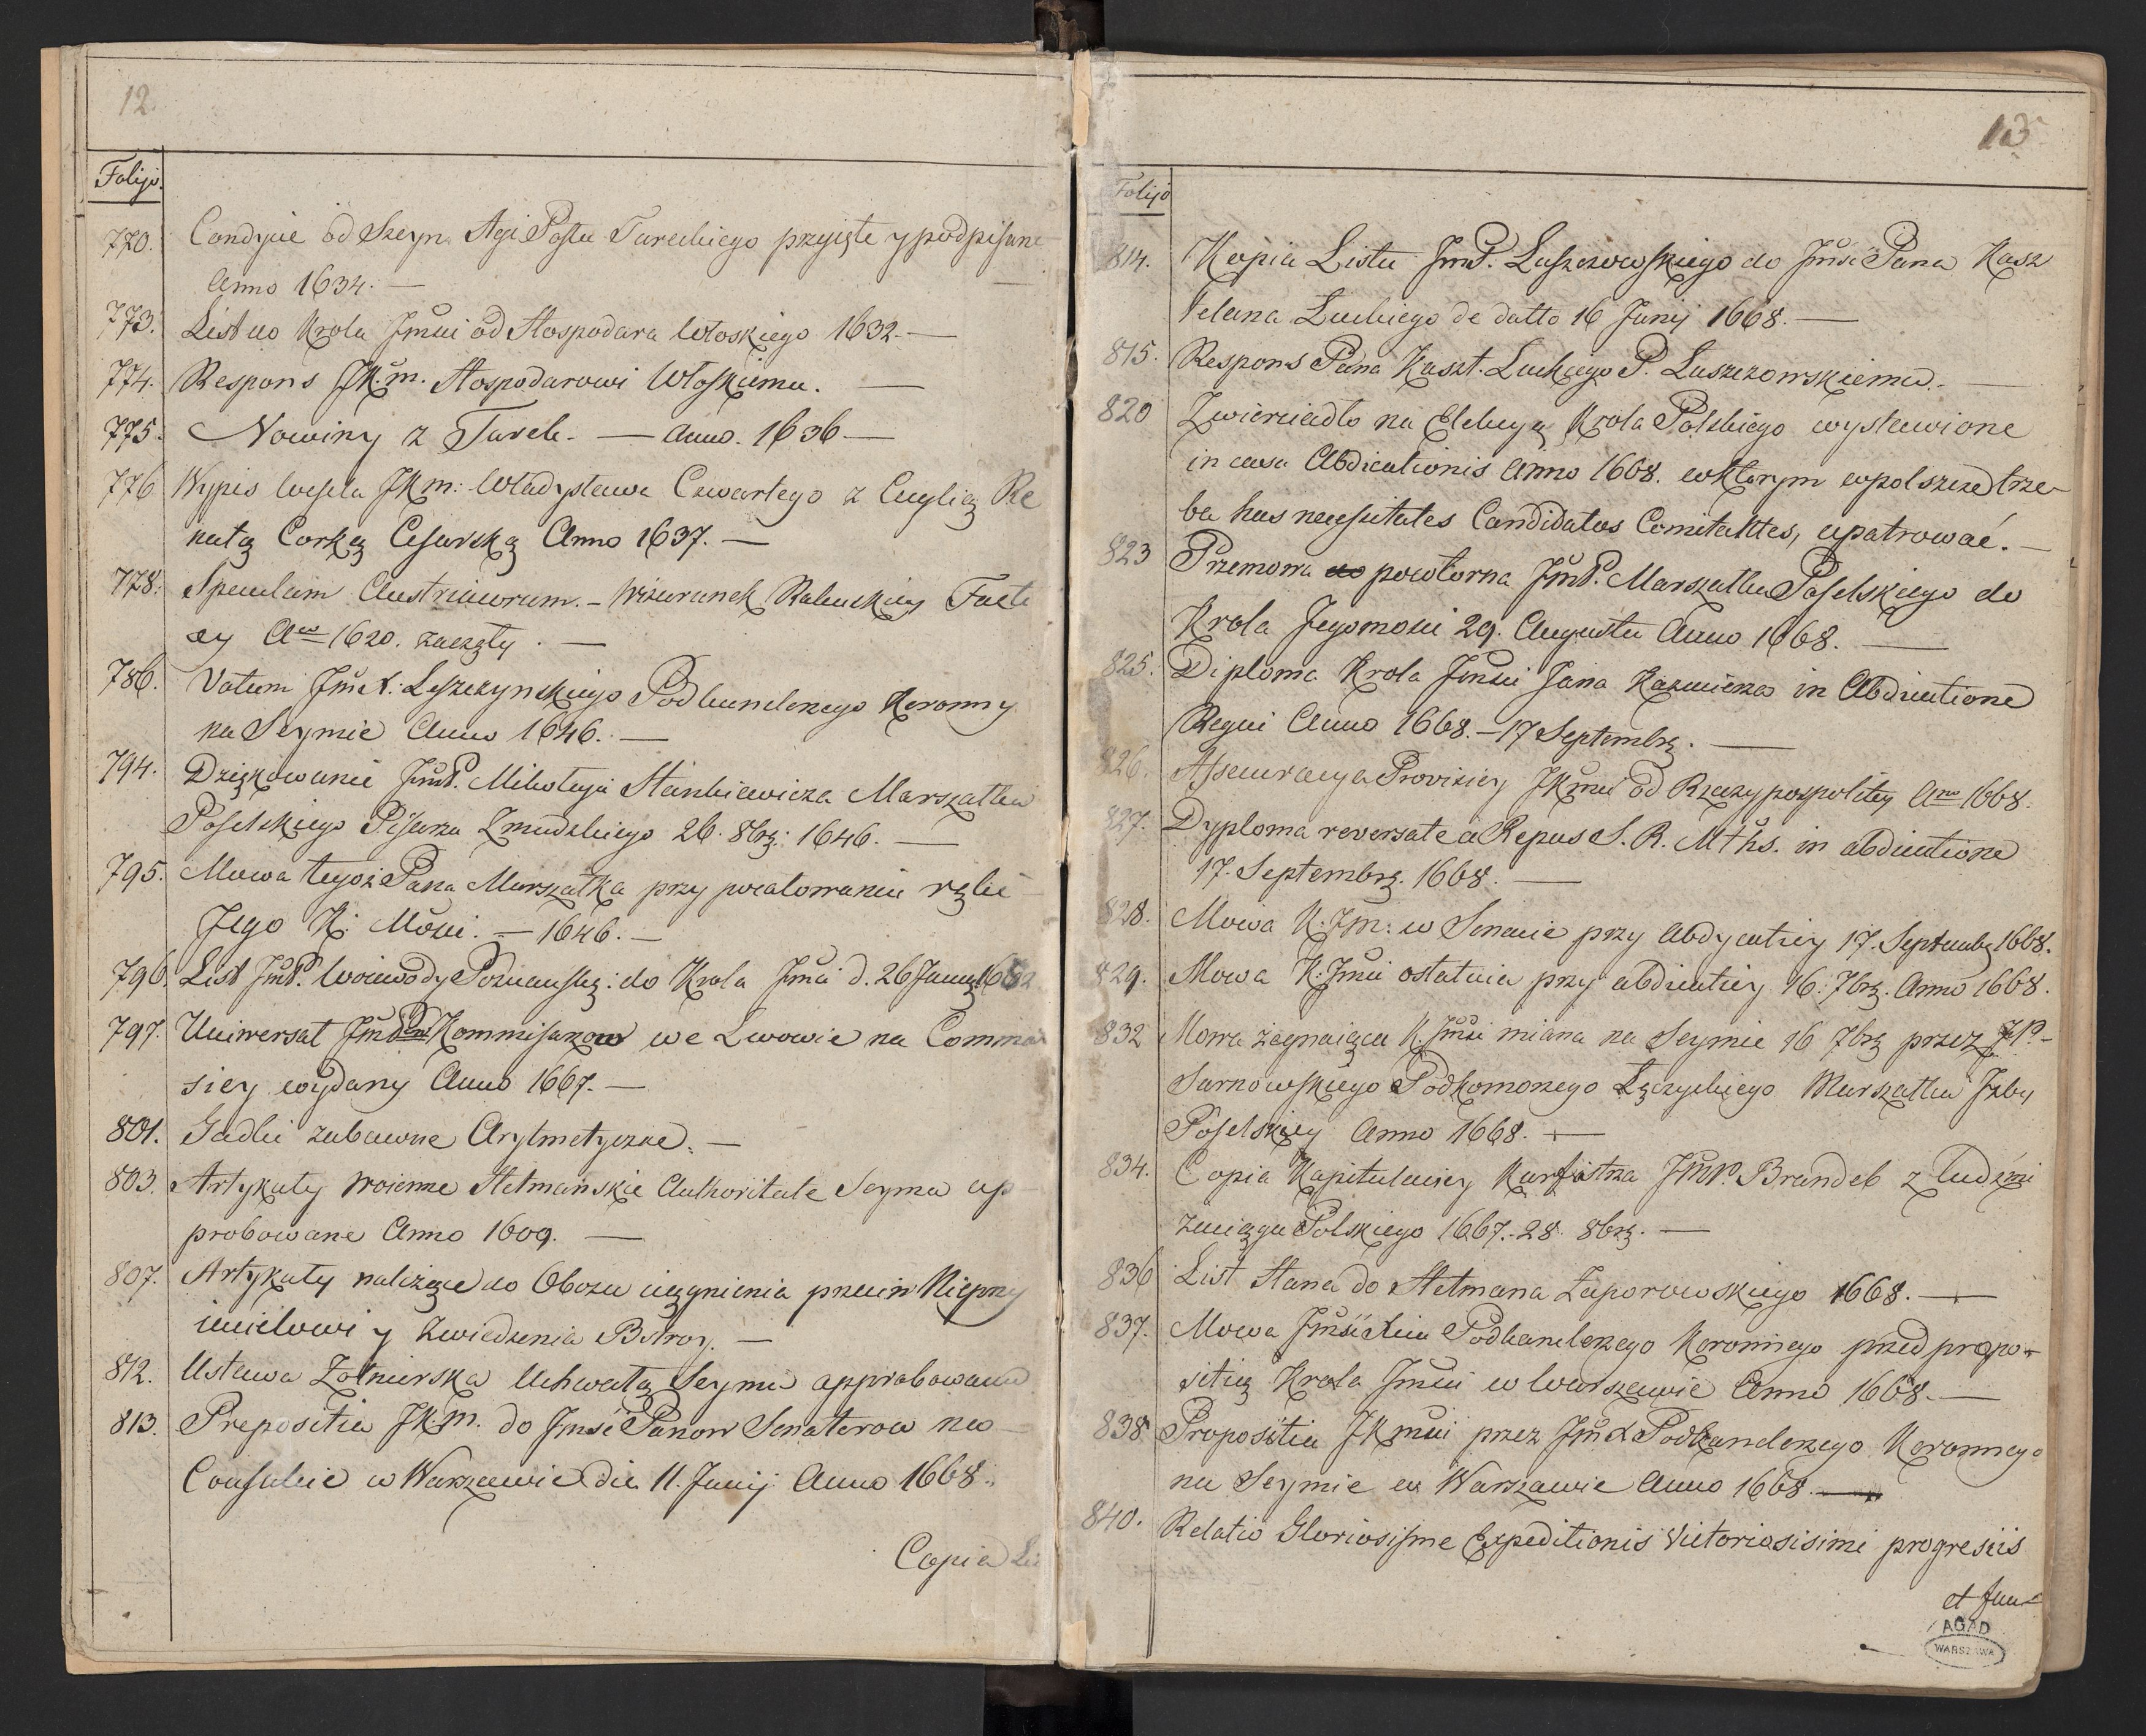 12.
Folijo.
770. Condycie od Szeyn Agi Posła Tureckiego przyięte y podpisane
Anno 1634. —
773. List do Krola Jmści od Hospodara Wołoskiego 1632. —
774. Respons JK.m. Hospodarowi Włoskiemu. —
775. Nowiny z Turek. — Anno. 1636 —
776 Wypis Wesela JKm: Władysława Czwartego z Cecylią Re
natą Corką Cesarską Anno 1637. —
778. Speculum Austriacorum. — Wizerunek Rakuskiey Facti
ey Aº 1620. zaczęty. —
786. Votum Jmć X. Leszczynskiego Podkanclerzego Koronny
na Seymie Anno 1646. —
794. Dziękowanie JmP. Mikołaja Stankiewicza Marszałka
Poselskiego Pisarza Zmudzkiego 26. 8brę: 1646. —
795. Mowa tegoż Pana Marszałka przy pocałowaniu ręki
Jego K: Mości. — 1646. —
796. List JmP. Woiewody Poznanskę: do Krola Jmci d. 26 Januę
797. Uniwersał Kommisarzow we Lwowie na Commi
siey wydany Anno 1667. —
801. Gadki zabawne Arytmetyczne. —
803. Artykuły Woienne Hetmańskie Authoritate Seymu ap
probowane Anno 1609. —
807. Artykuły należące do Obozu ciągnienia przeciw Nieprzy
iacielowi y Zwiedzenia Bitwy. —
812. Ustawa Żołnierska Uchwałą Seymu approbowana
813. Propositia JK.m. do Jmść Panow Senatorow na
Consulcie w Warszawie die 11. Junij Anno 1668.
Copia Li
13
Folijo
814. Kopia Listu JmP. Luszczowskiego do Jmści Pana Kasz
telana Luckiego de datto 16 Junij 1668. —
815. Respons Pana Kaszt. Luckiego P. Luszczowskiemu. —
820 Zwierciadło na Elekcyą Krola Polskiego wystawione
in casu Abdicationis Anno 1668. wktorym wpolszcze trze-
ba has necessitates Candidatos Comitantes, upatrować. —
823 Przemowa powtorna JmP. Marszałka Poselskiego do
Krola Jegomości 29. Augusta Anno 1668. —
825. Diploma Krola Jmści Jana Kazmierza in Abdicatione
Regni Anno 1668. — 17 Septembrę. —
826. Assecuracya Provisiey JKmci od Rzeczypospolitey Aº 1668.
827. Dyploma reversale a Repus S. R. Mths. in abdicatione
17. Septembrę. 1668. —
828. Mowa K. Jm: w Senacie przy Abdycatiey 17. Septembę 1668.
829. Mowa K. Jmci ostatnia przy abdicatiey 16. 7brę. Anno 1668.
832 Mowa żegnaiąca K. Jmści miana na Seymie 16 7brę przez JP-
Sarnowskiego Podkomorzego Łęczyckiego Marszałka Izby
Poselskiey Anno 1668. —
834. Copia Kapitulaciey Kurfistrza Brandeb z ludźmi
zaciągu Polskiego 1667. 28. 8brę. —
836 List Hana do Hetmana Zaporowskiego 1668. —
837. Mowa Jmści Xiu Podkanclerzego Koronnego przed propo-
sitią Krola Jmści w Warszawie Anno 1668. —
838 Propositia JKmci przez Jmć X Podkanclerzego Koronnego
na Seymie w Warszawie Anno 1668. —
840. Relatio Gloriosisme Expeditionis Victoriosisimi progresiis
et fau
AGAD
WARSZAWA